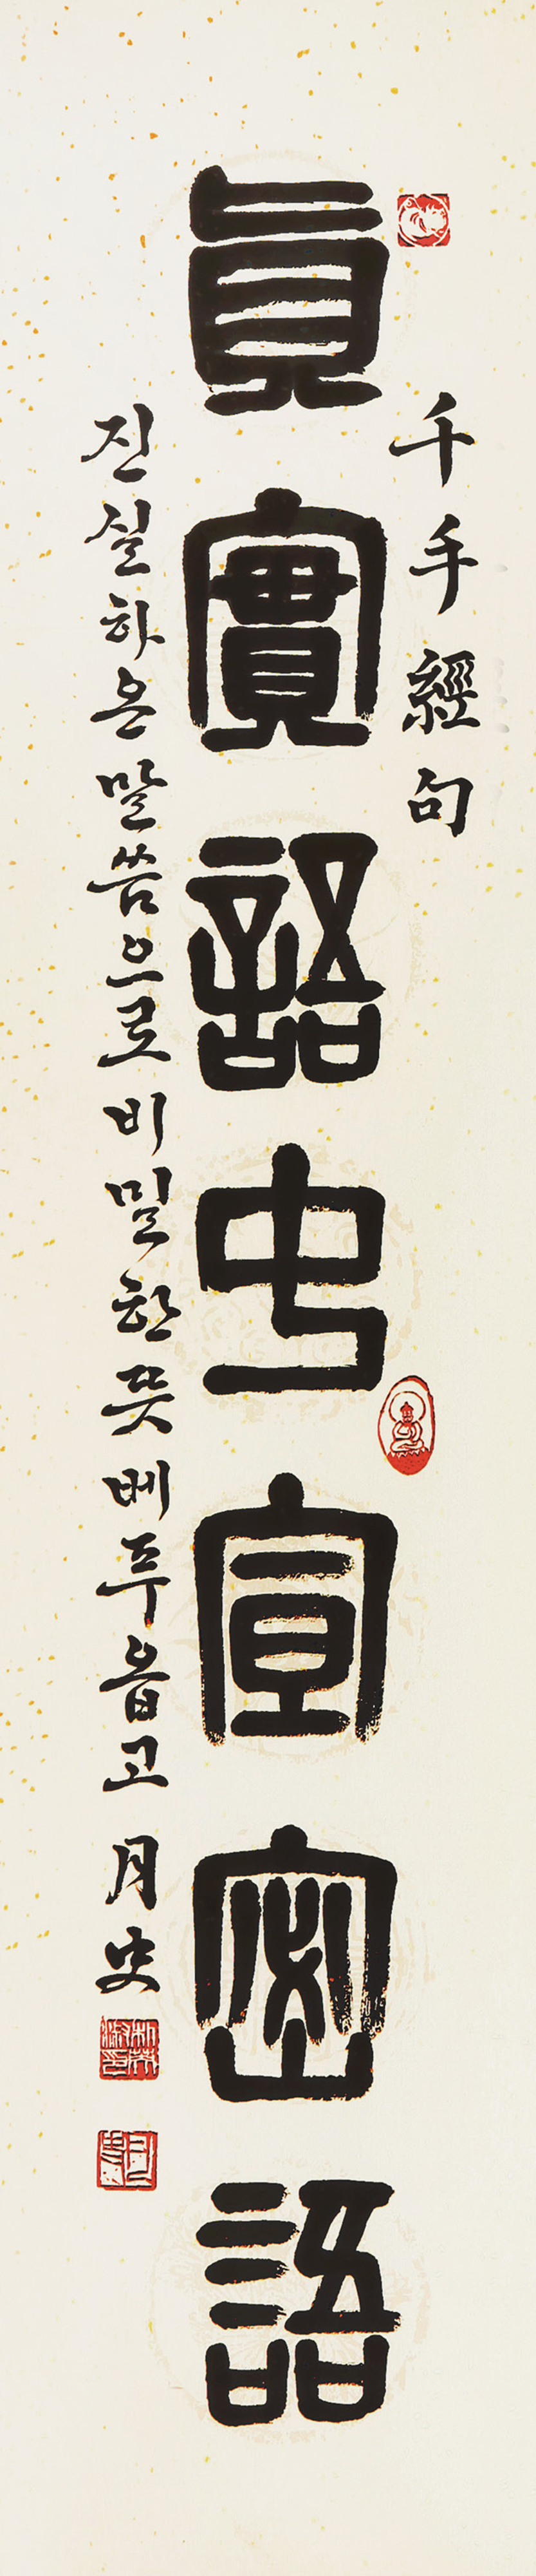 千手經句
眞實語中宣密語
진실하온 말씀으로 비밀한 뜻 베푸옵고 月史